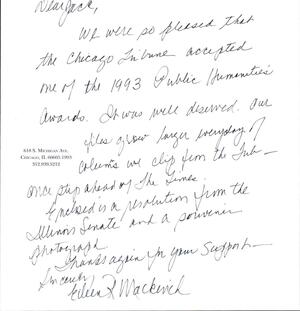 Dear Jack,
We were so pleased that
the Chicago Tribune accepted
one of the 1993 Public Humanities
Awards. It was well deserved. Our
files grow larger everyday of
columns we clip from the Trib—
618 S. Michigan Ave.
Chicago, IL 60605-1993
312.939.5212
once step ahead of The Times.
Enclosed is a resolution from the
Illinois Senate and a souvenir
photograph
Thanks again for your support—
Sincerely,
Eileen R Mackevich